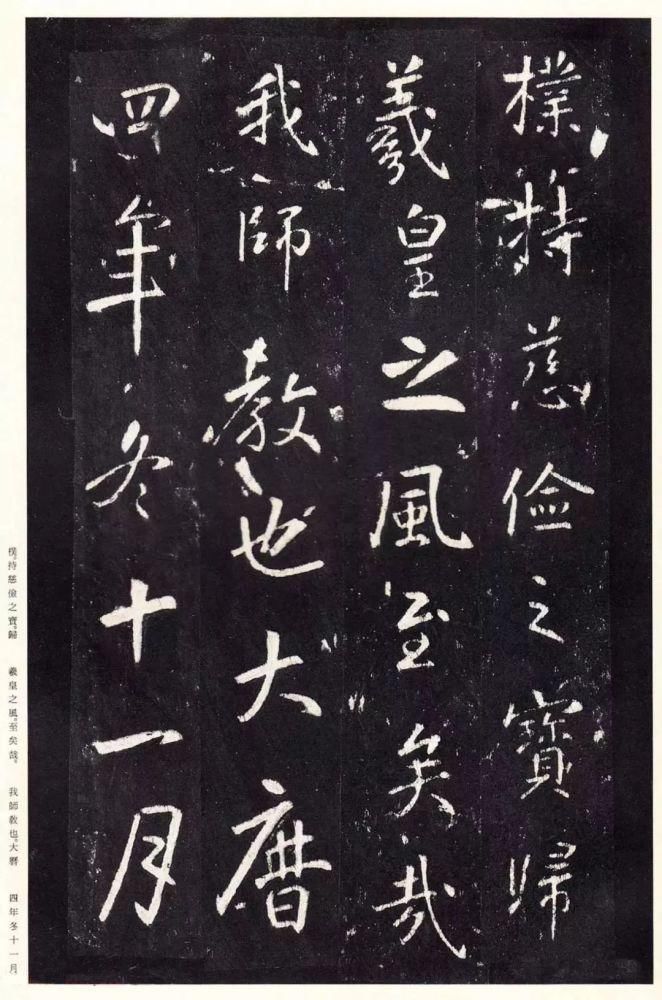 樸持慈儉之寶歸
羲皇之風至矣哉
我師教也大曆
四年冬十一月
樸。持慈儉之寶。歸　羲皇之風。至矣哉。　我師教也。大曆　四年冬十一月